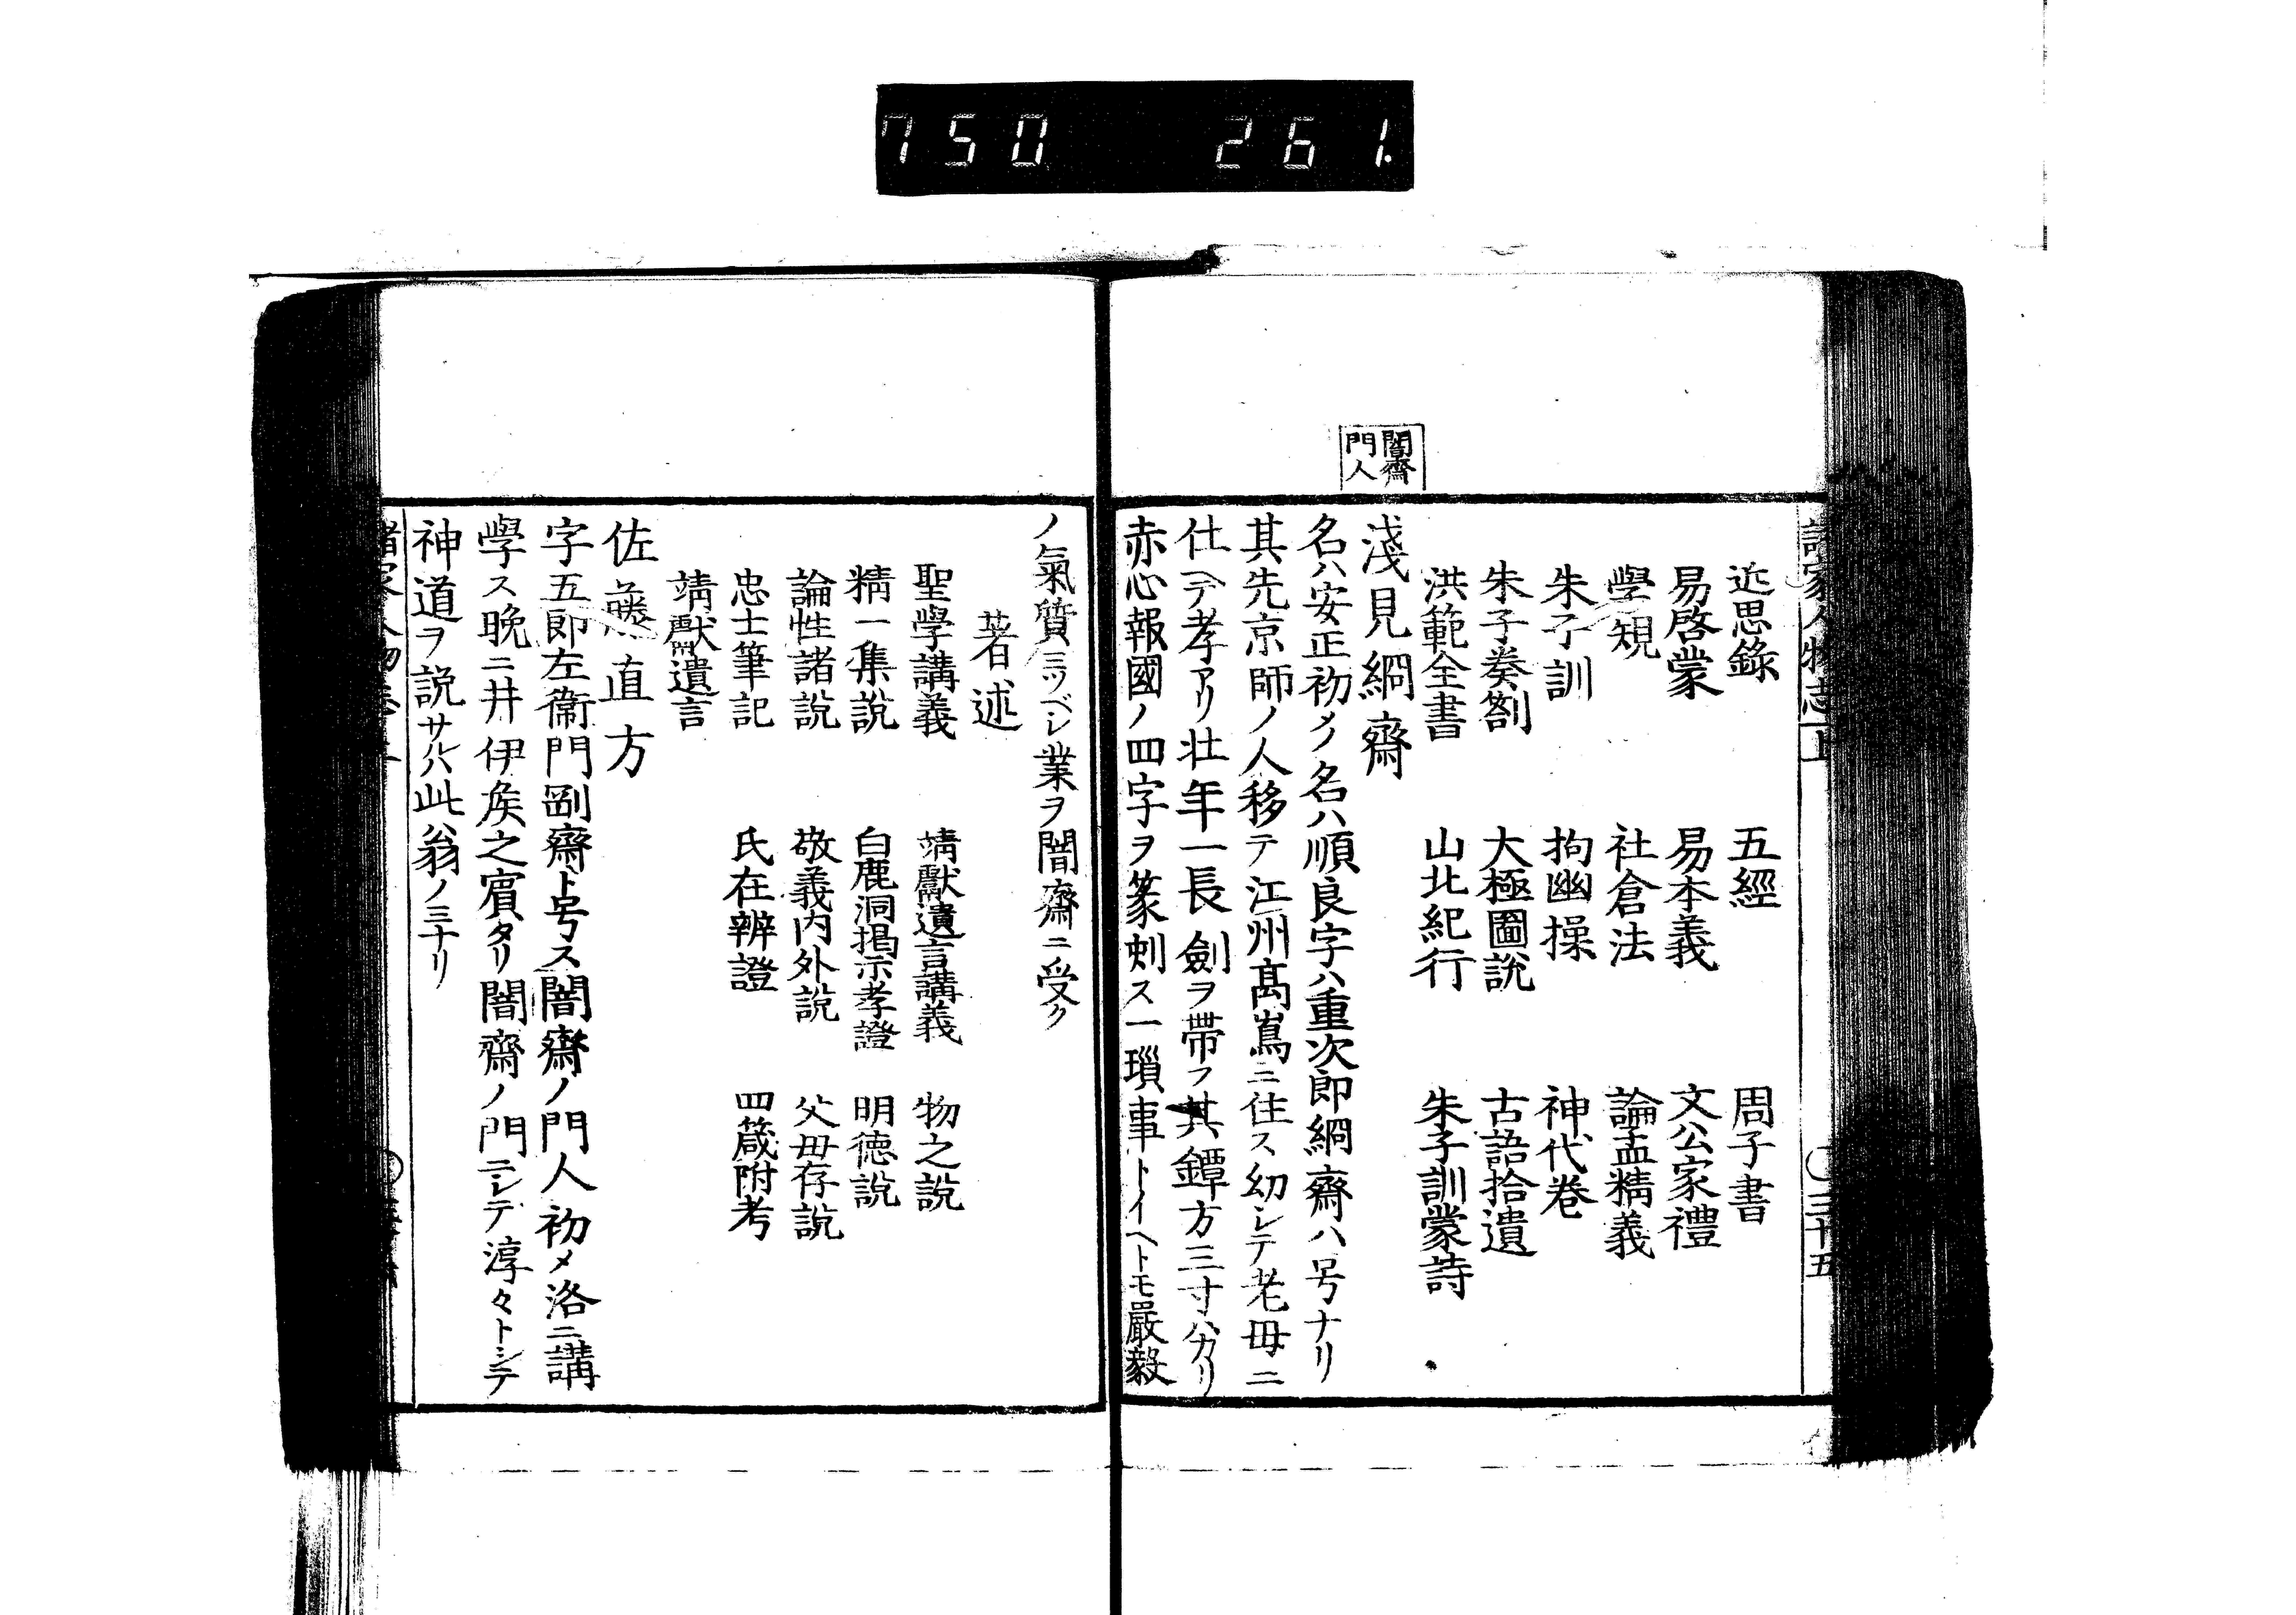 750 261.
諸家人物志 上 ○三十五
近思錄 五經 周子書
易啓蒙 易本義 文公家禮
學規 社倉法 論孟精義
朱子訓 拘幽操 神代巻
朱子奏劄 大極圖説 古語拾遺
洪範全書 山北紀行 朱子訓蒙詩
闇齋
門人
淺見絅齋
名ハ安正初メノ名ハ順良字ハ重次郎絅齋ハ号ナリ
其先京師ノ人移テ江州髙嶌ニ住ス幼シテ老母ニ
仕ヘテ孝アリ壮年一長劍ヲ帶フ其鐔方三寸ハカリ
赤心報國ノ四字ヲ篆刻ス一瑣事トイヘトモ嚴毅
ノ氣質ミツベシ業ヲ闇齋ニ受ク
著述
聖學講義 靖獻遺言講義 物之説
精一集説 白鹿洞掲示孝證 明德説
論性諸説 敬義内外説 父母存説
忠士筆記 氏在辨證 四箴附考
靖獻遺言
佐藤直方
字五郎左衞門剛齋ト号ス闇齋ノ門人初メ洛ニ講
學ス晩ニ井伊矦之賓タリ闇齋ノ門ニシテ淳々トシテ
神道ヲ説サルハ此翁ノミナリ